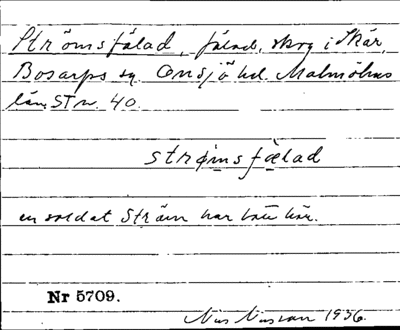 Strömsfälad, fälad, skog i Skär,
Bosarps sn. Onsjö hd. Malmöhus
län. ST nr. 40.
strömsfælad
en soldat Ström har bott här.
Nr 5709.
Nils Nilsson 1936.